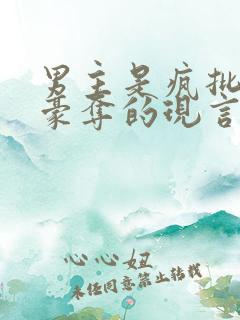 男主是疯批
豪夺的现言
心心妞
未经同意禁止转载